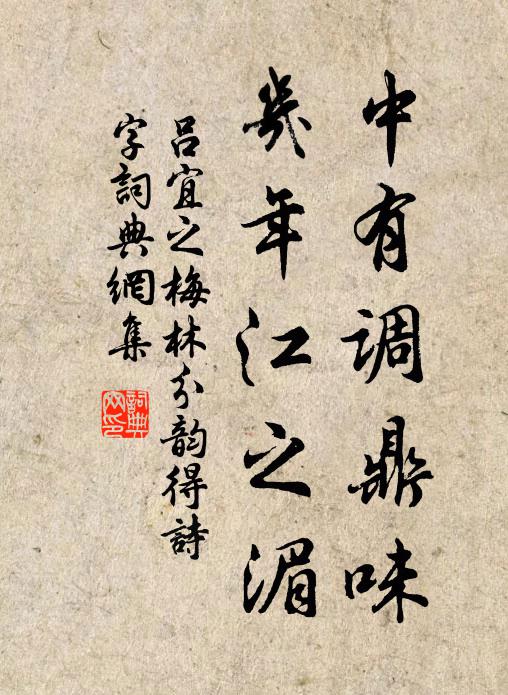 中有调鼎味
幾年江之湄
吕宜之梅林分韵得詩
字詞典網集
詞典
网印